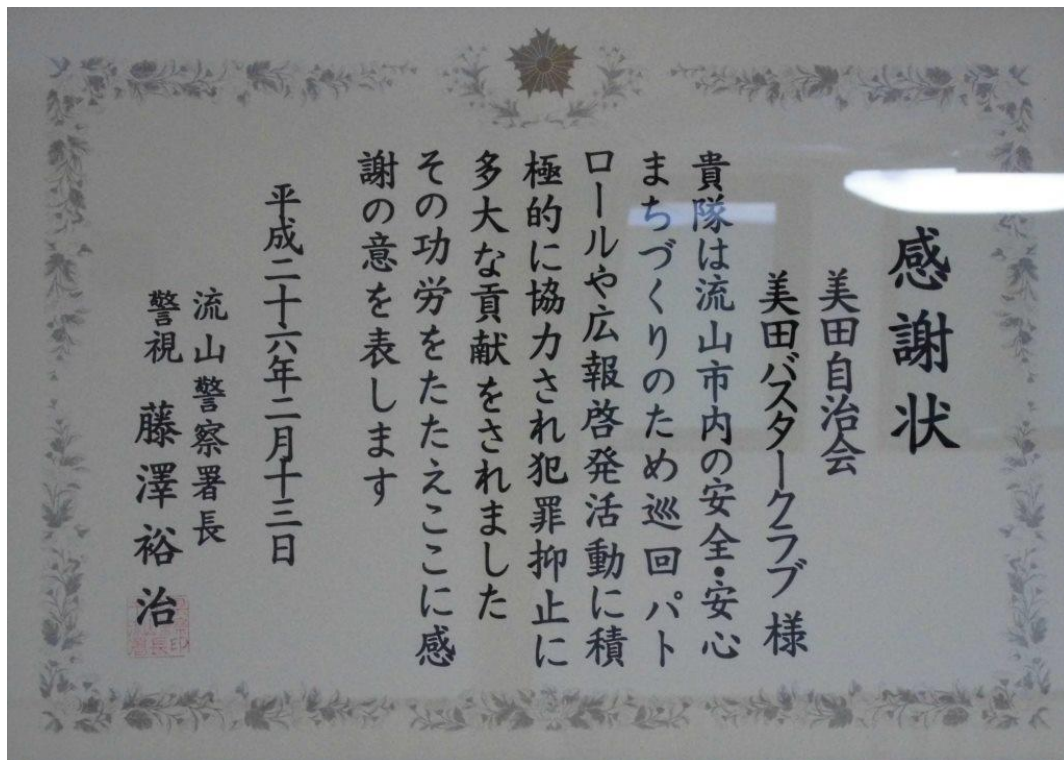 感謝状
美田自治会
美田バスタークラブ様
貴隊は流山市内の安全・安心
まちづくりのため巡回パト
ロールや広報啓発活動に積
極的に協力され犯罪抑止に
多大な貢献をされました
その功労をたたえここに感
謝の意を表します
平成二十六年二月十三日
流山警察署長
警視 藤澤裕治